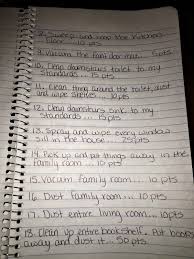 8. Sweep and mop the kitchens
floor... 10 pts
9. Vacuum the ... 5 pts
10. Clean downstairs toilet to my
standards... 15 pts
11. Clean thing around the toilet, dust
and wipe shelves... 10 pts
12. Clean downstairs sink to my
standards... 15 pts
13. Spray and wipe every window
sill in the house... 25 pts
14. Pick up and put things away in the
family room... 10 pts
15. Vacuum family room... 10 pts
16. Dust family room... 10 pts
17. Dust entire living room... 10 pts
18. Clean up entire bookshelf. Put books
away and dust it... 50 pts